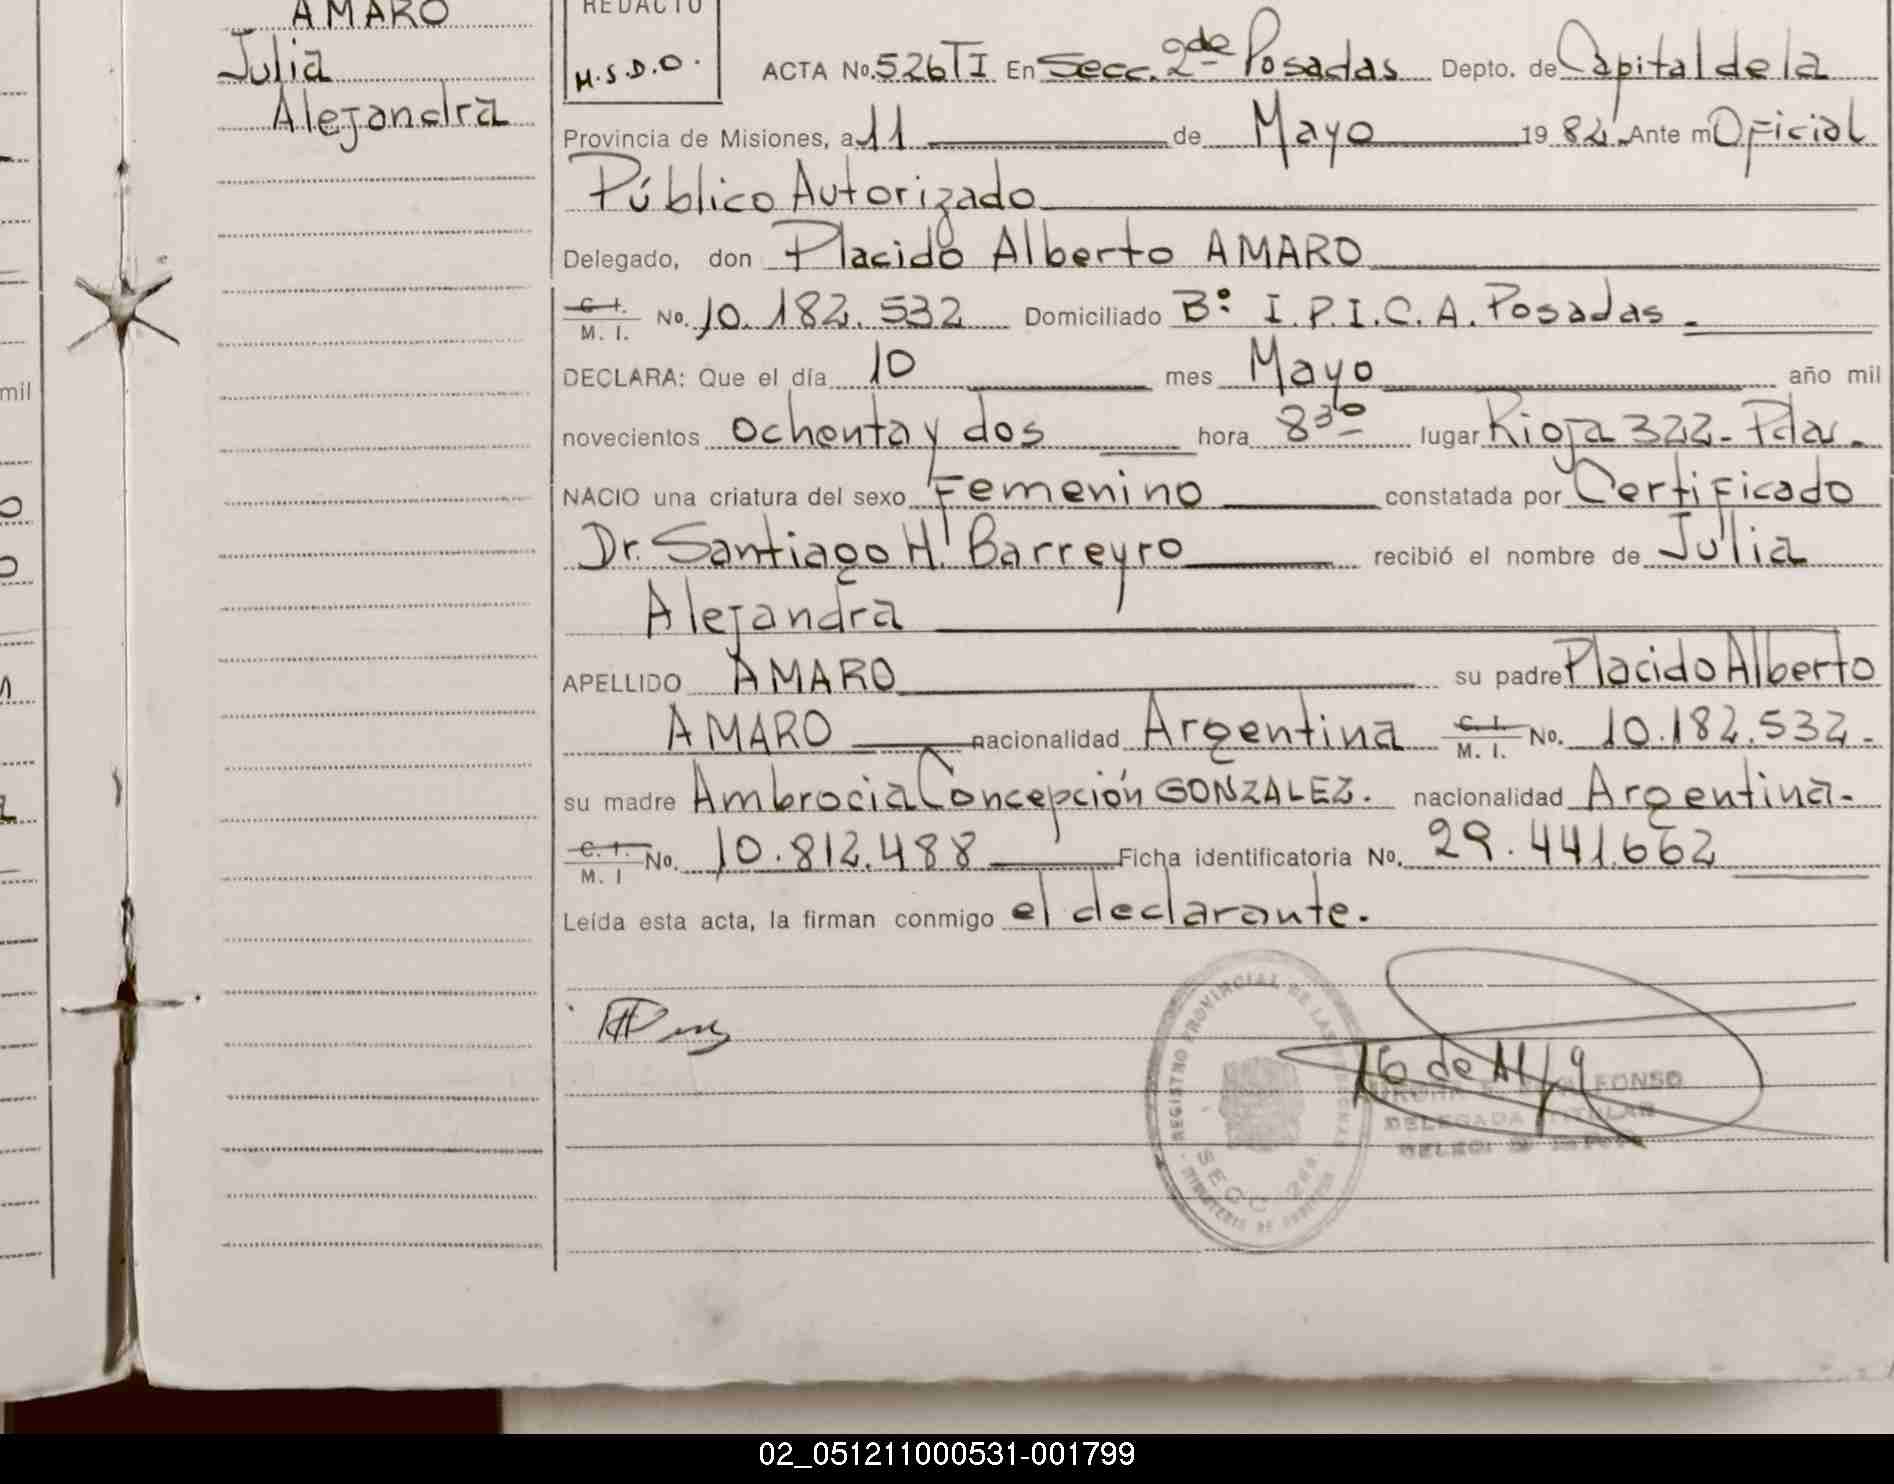 AMARO
Julia
Alejandra
REDACTO
M.S.D.O.
ACTA No. 526 TI En Secc. 2de Posadas Depto. de Capital de la
Provincia de Misiones, a 11 de Mayo 1982 Ante mi Oficial
Público Autorizado
Delegado, don Placido Alberto AMARO
C. I.
M. I. No. 10.182.532 Domiciliado B: I.P.I.C.A. Posadas.
DECLARA: Que el día 10 mes Mayo año mil
novecientos ochenta y dos hora 8 30 lugar Rioja 322- Pdas.
NACIO una criatura del sexo Femenino constatada por Certificado
Dr. Santiago H. Barreyro recibió el nombre de Julia
Alejandra
APELLIDO AMARO su padre Placido Alberto
AMARO nacionalidad Argentina C. I.
M. I. No. 10.182.532-
su madre Ambrocia Concepción GONZALEZ. nacionalidad Argentina-
C. I.
M. I No. 10.812.488 Ficha identificatoria No. 29.441.662
Leída esta acta, la firman conmigo el declarante.
REGISTRO PROVINCIAL DE LAS PERSONAS
SECC. 2da.
MINISTERIO DE GOBIERNO
DELEGADA TITULAR
mil
02_051211000531-001799